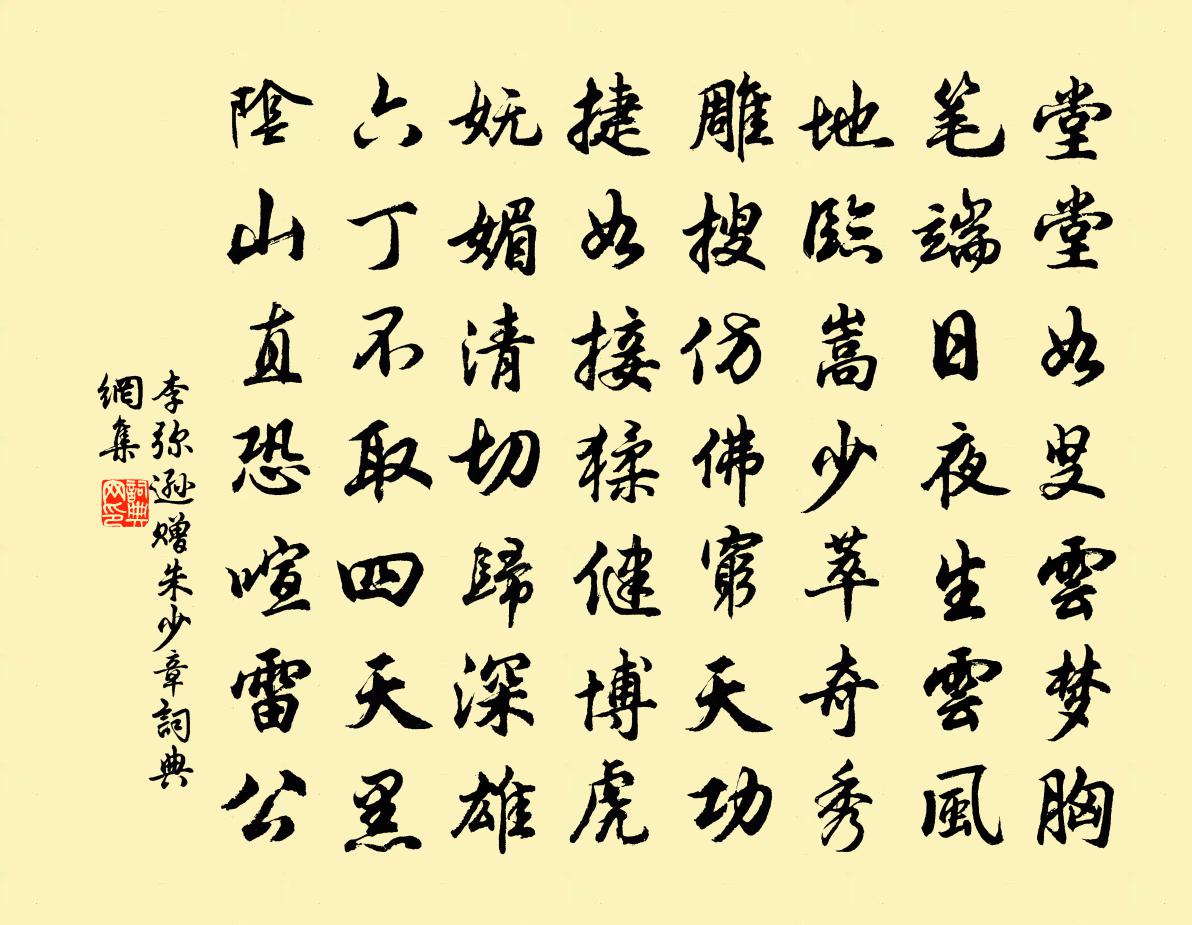 堂堂如叟雲梦胸
笔端日夜生雲風
地臨嵩少萃奇秀
雕搜仿佛窮天功
捷如接猱健博虎
妩媚清切歸深雄
六丁不取四天黑
陰山直恐喧雷公
李弥遜赠朱少章詞典
網集
詞典
网印